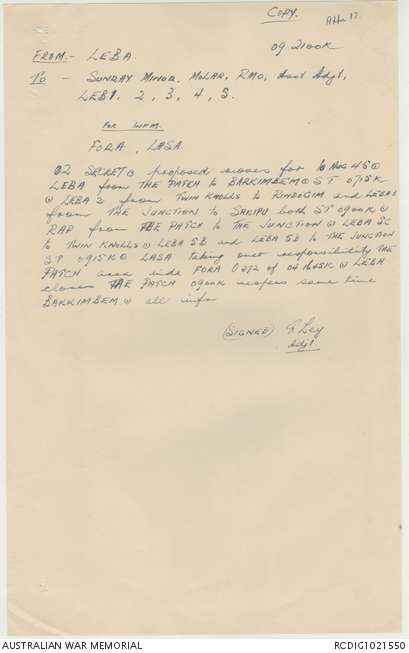 COPY.
App 17.
FROM:- LEBA 09 2100K
To - SUNDAY MINOR, MOLAR, RMO, Asst Adjt,
LEB1, 2, 3, 4, S.
For WFM.
FORA, LASA.
02 SECRET @ proposed moves for 10 AUG 45 @
LEBA from THE PATCH to BARKIMBEM @ ST 0715K
@ LEBA 2 from TWIN KNOLLS to RINDOGIM and LEBA 3
from THE JUNCTION to SAKIPU both ST 0900K @
RAP from THE PATCH to THE JUNCTION @ LEBA SC
to TWIN KNOLLS @ LEBA SB and LEBA 5B to THE JUNCTION
ST 0915K @ LASA taking over responsibility THE
PATCH area vide FORA O 272 of 04 @ LEBA
closes THE PATCH 0900K reopens same time
BARKIMBEM @ all info
(SIGNED) Ley
Adjt.
AUSTRALIAN WAR MEMORIAL RCDIG1021550